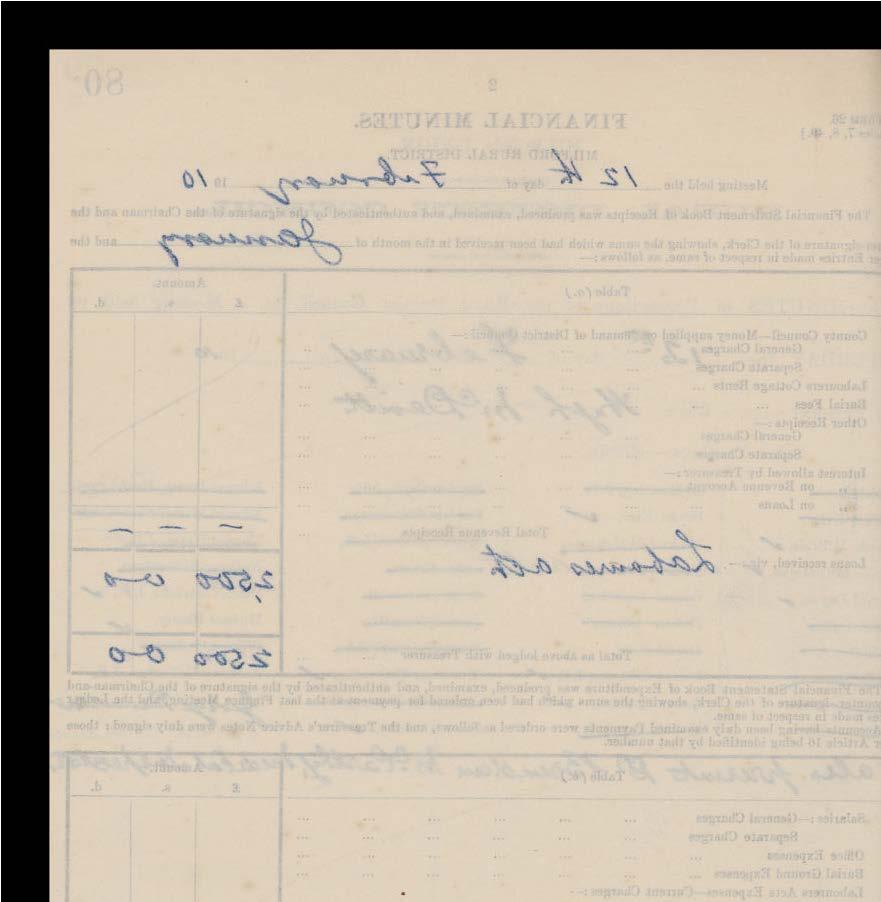 80
2
FINANCIAL MINUTES.
26.
7, 8,
MILFORD RURAL DISTRICT
Meeting held the 12th day of February 1910
The Financial Statement Book of Receipts was produced, examined, and authenticated by the signature of the Chairman and the
signature of the Clerk, showing the sums which had been received in the month of January and the
Entries made in respect of same, as follows:—
Table (a.) Amount.
£ s. d.
County Council—Money supplied on demand of District Council:—
General Charges
Separate Charges
Labourers Cottage Rents
Burial Fees
Other Receipts:—
General Charges
Separate Charges
Interest allowed by Treasurer:—
„ on Revenue Account
„ on Loans
Total Revenue Receipts, — — —
Loans received, viz.:— Labourers act 2,500 0 0
Total as above lodged with Treasurer 2500 0 0
The Financial Statement Book of Expenditure was produced, examined, and authenticated by the signature of the Chairman and
signature of the Clerk, showing the sums which had been ordered for payment at the last Finance Meeting, and the Ledger
made in respect of same.
Accounts having been duly examined Payments were ordered as follows, and the Treasurer's Advice Notes were duly signed: those
Article 16 being identified by that number.
Table Amount.
£ s. d.
Salaries:—General Charges
Separate Charges
Office Expenses
Burial Ground Expenses
Labourers Acts Expenses—Current Charges:—